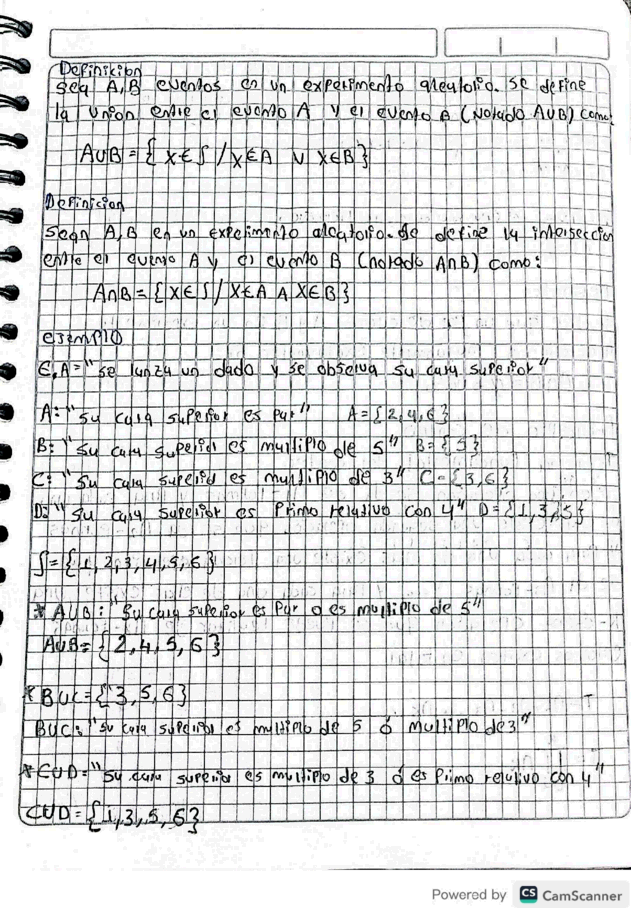 Definicion
sea A,B eventos en un experimento aleatorio. se define
la union entre el evento A y el evento B (Notado AUB) como:
AUB = { X∈S / X∈A ∨ X∈B }
Definicion
sean A,B en un experimento aleatorio. se define la interseccion
entre el evento A y el evento B (notado A∩B) como:
A∩B = { X∈S / X∈A ∧ X∈B }
ejemplo
E.A = "se lanza un dado y se observa su cara superior"
A: "su cara superior es par" A = {2,4,6}
B: "su cara superior es multiplo de 5" B = {5}
C: "su cara superior es multiplo de 3" C = {3,6}
D: "su cara superior es Primo relativo con 4" D = {1,3,5}
S = {1,2,3,4,5,6}
* AUB: "su cara superior es Par o es multiplo de 5"
AUB = {2,4,5,6}
* BUC = {3,5,6}
BUC: "su cara superior es multiplo de 5 ó multiplo de 3"
* CUD = "su cara superior es multiplo de 3 ó es Primo relativo con 4"
CUD = {1,3,5,6}
Powered by CS CamScanner